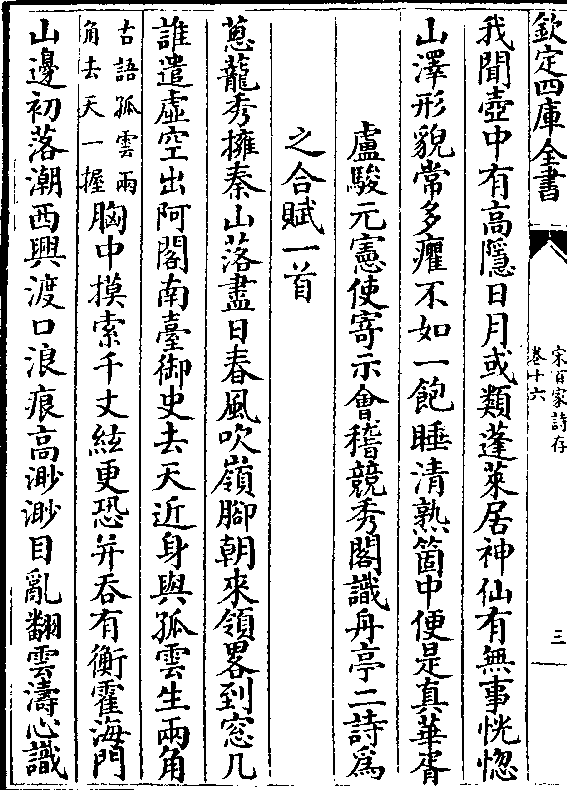 欽定四庫全書
宋百家詩存
卷十六
三
我聞壺中有高隱日月或類蓬萊居神仙有無事恍惚
山澤形貌常多癯不如一飽睡清熟箇中便是真華胥
盧駿元憲使寄示會稽競秀閣識舟亭二詩為
之合賦一首
蔥蘢秀擁秦山落盡日春風吹嶺腳朝來領畧到窓几
誰遣虛空出阿閣南臺御史去天近身與孤雲生兩角
古語孤雲兩
角去天一握
胸中摸索千丈絃更恐并吞有衡霍海門
山邊初落潮西興渡口浪痕高渺渺目亂翻雲濤心識